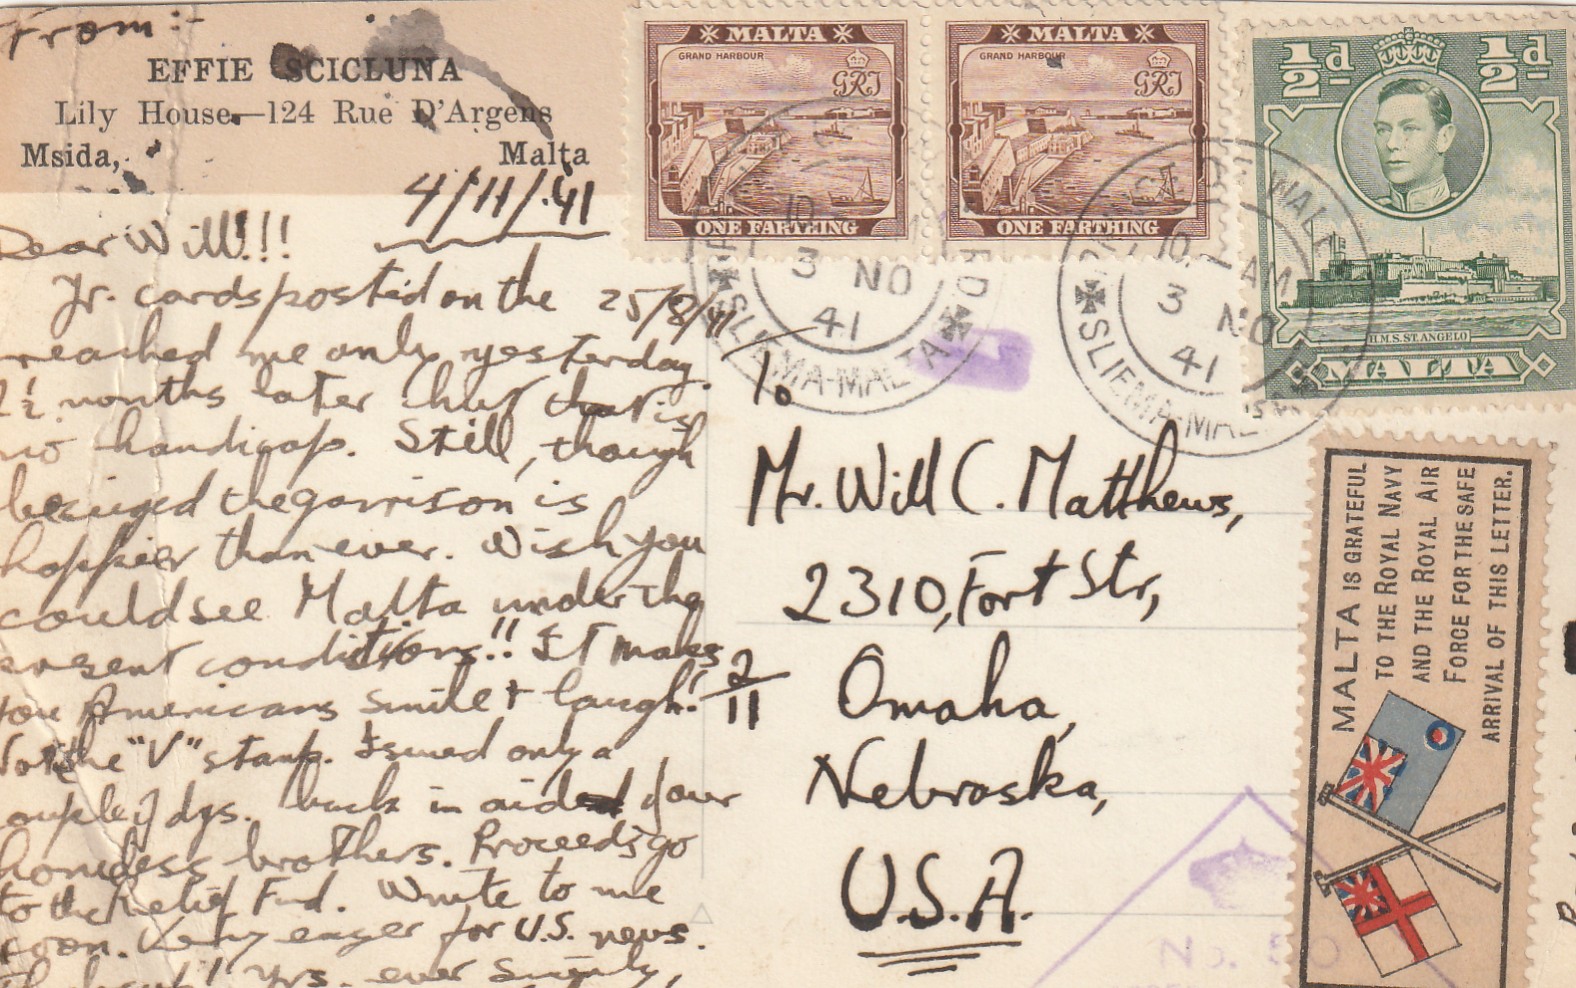 From:-
EFFIE SCICLUNA
Lily House.—124 Rue D'Argens
Msida, Malta
4/11/.41
Dear Will!!!
Yr. cards posted on the 25/8/41
reached me only yesterday.
2½ months later but that is
no handicap. Still, though
besieged the garrison is
happier than ever. Wish you
could see Malta under the
present conditions!! It makes
you Americans smile & laugh!
Note the "V" stamp. Issued only a
couple of dys. back in aid of our
homeless brothers. Proceeds go
to the Relief Fnd. Write to me
soon. Very eager for U.S. news.
Yrs. ever Sincerely,
2/11
MALTA
GRAND HARBOUR
GRI
ONE FARTHING
MALTA
GRAND HARBOUR
GRI
ONE FARTHING
½d ½d
H.M.S. ST. ANGELO
MALTA
3 NO
41
SLIEMA-MALTA
10 AM
3 NO
41
SLIEMA-MALTA
To
Mr. Will C. Matthews,
2310, Fort Str,
Omaha,
Nebraska,
U.S.A.
MALTA IS GRATEFUL
TO THE ROYAL NAVY
AND THE ROYAL AIR
FORCE FOR THE SAFE
ARRIVAL OF THIS LETTER.